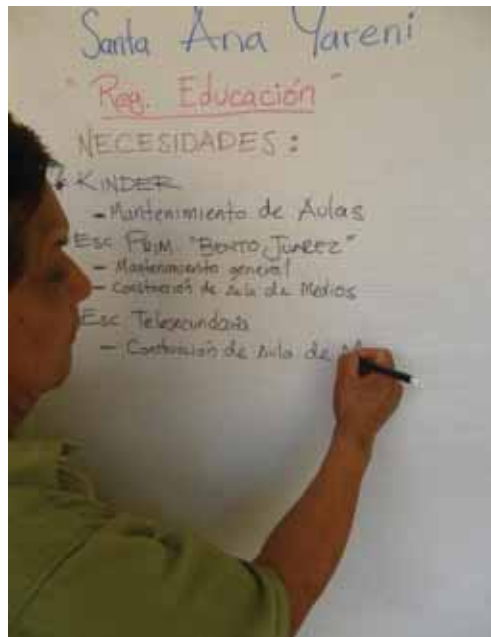 Santa Ana Yareni
"Reg. Educación"
NECESIDADES:
KINDER
- Mantenimiento de Aulas
Esc PRIM "BENITO JUAREZ"
- Mantenimiento general
- Construcción de Aula de Medios
Esc Telesecundaria
- Construcción de Aula de